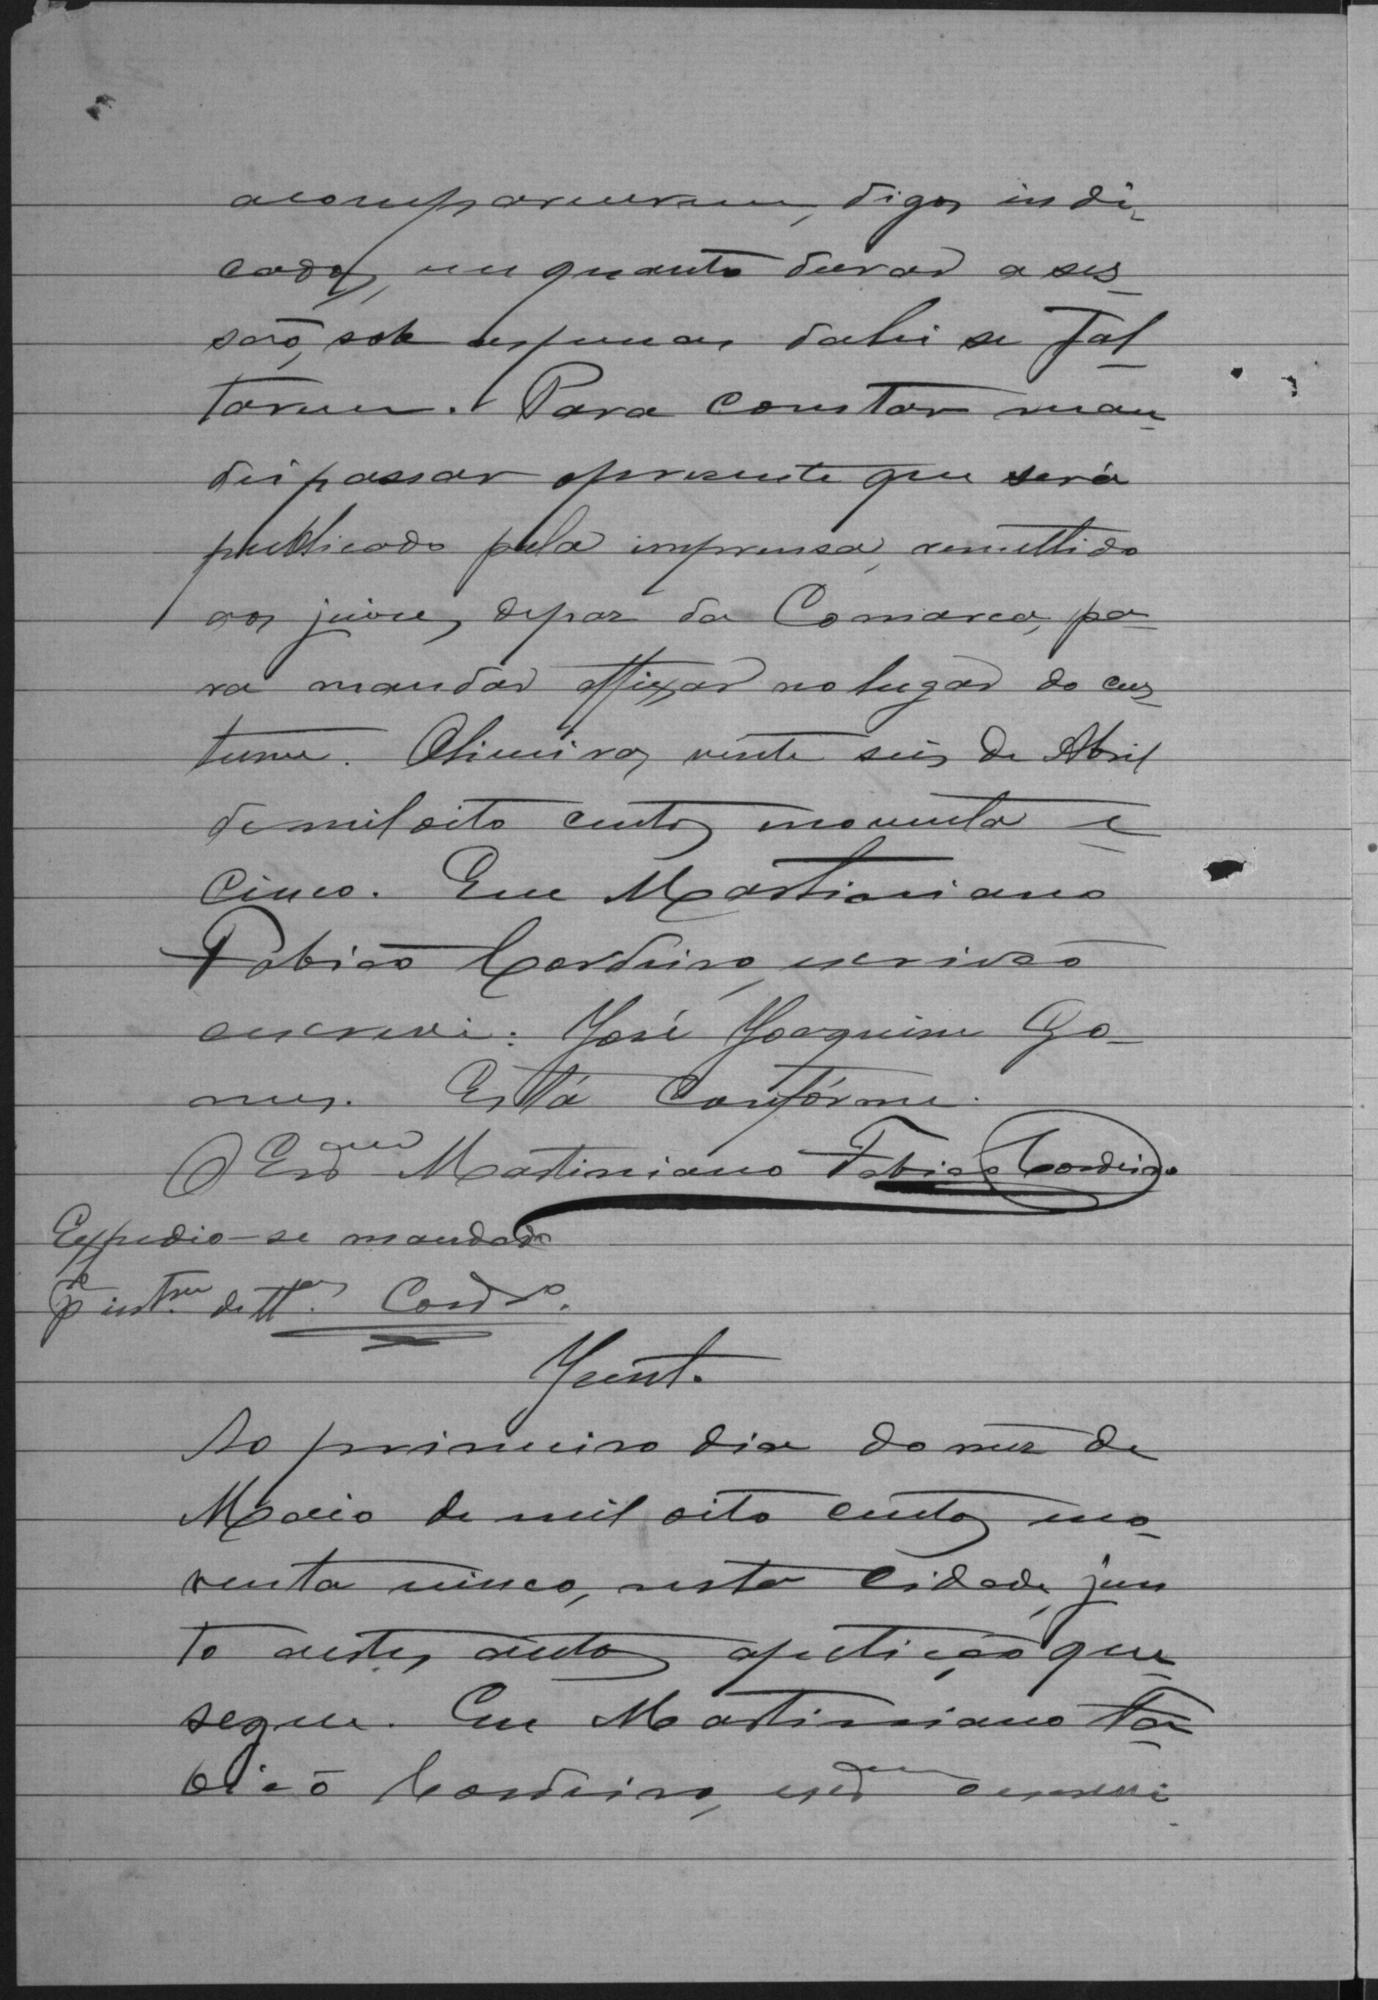 acomparecerem, digo, indi-
cados, em quanto durar a ses-
são, sob as penas da lei se fal-
tarem. Para constar man-
dei passar o presente que será
publicado pela imprensa, remettido
aos juizes de paz da Comarca, pa-
ra mandar affixar no lugar do cus-
tume. Oliveira, vinte seis de Abril
de mil oito centos noventa e
cinco. Eu Martiniano
Fabião Cordeiro, escrivão
o escrevi. José Joaquim Go-
mes. Está Confórme.
O Escram Martiniano Fabião Cordeiro
Expedio-se mandado
pa int.am de tt.as Cordro.
Junt.
Ao primeiro dia do mez de
Maio de mil oito centos no-
venta cinco, nesta Cidade, jun
to a estes autos a petição que
segue. Eu Martiniano Fa-
bião Cordeiro, escam o escrevi